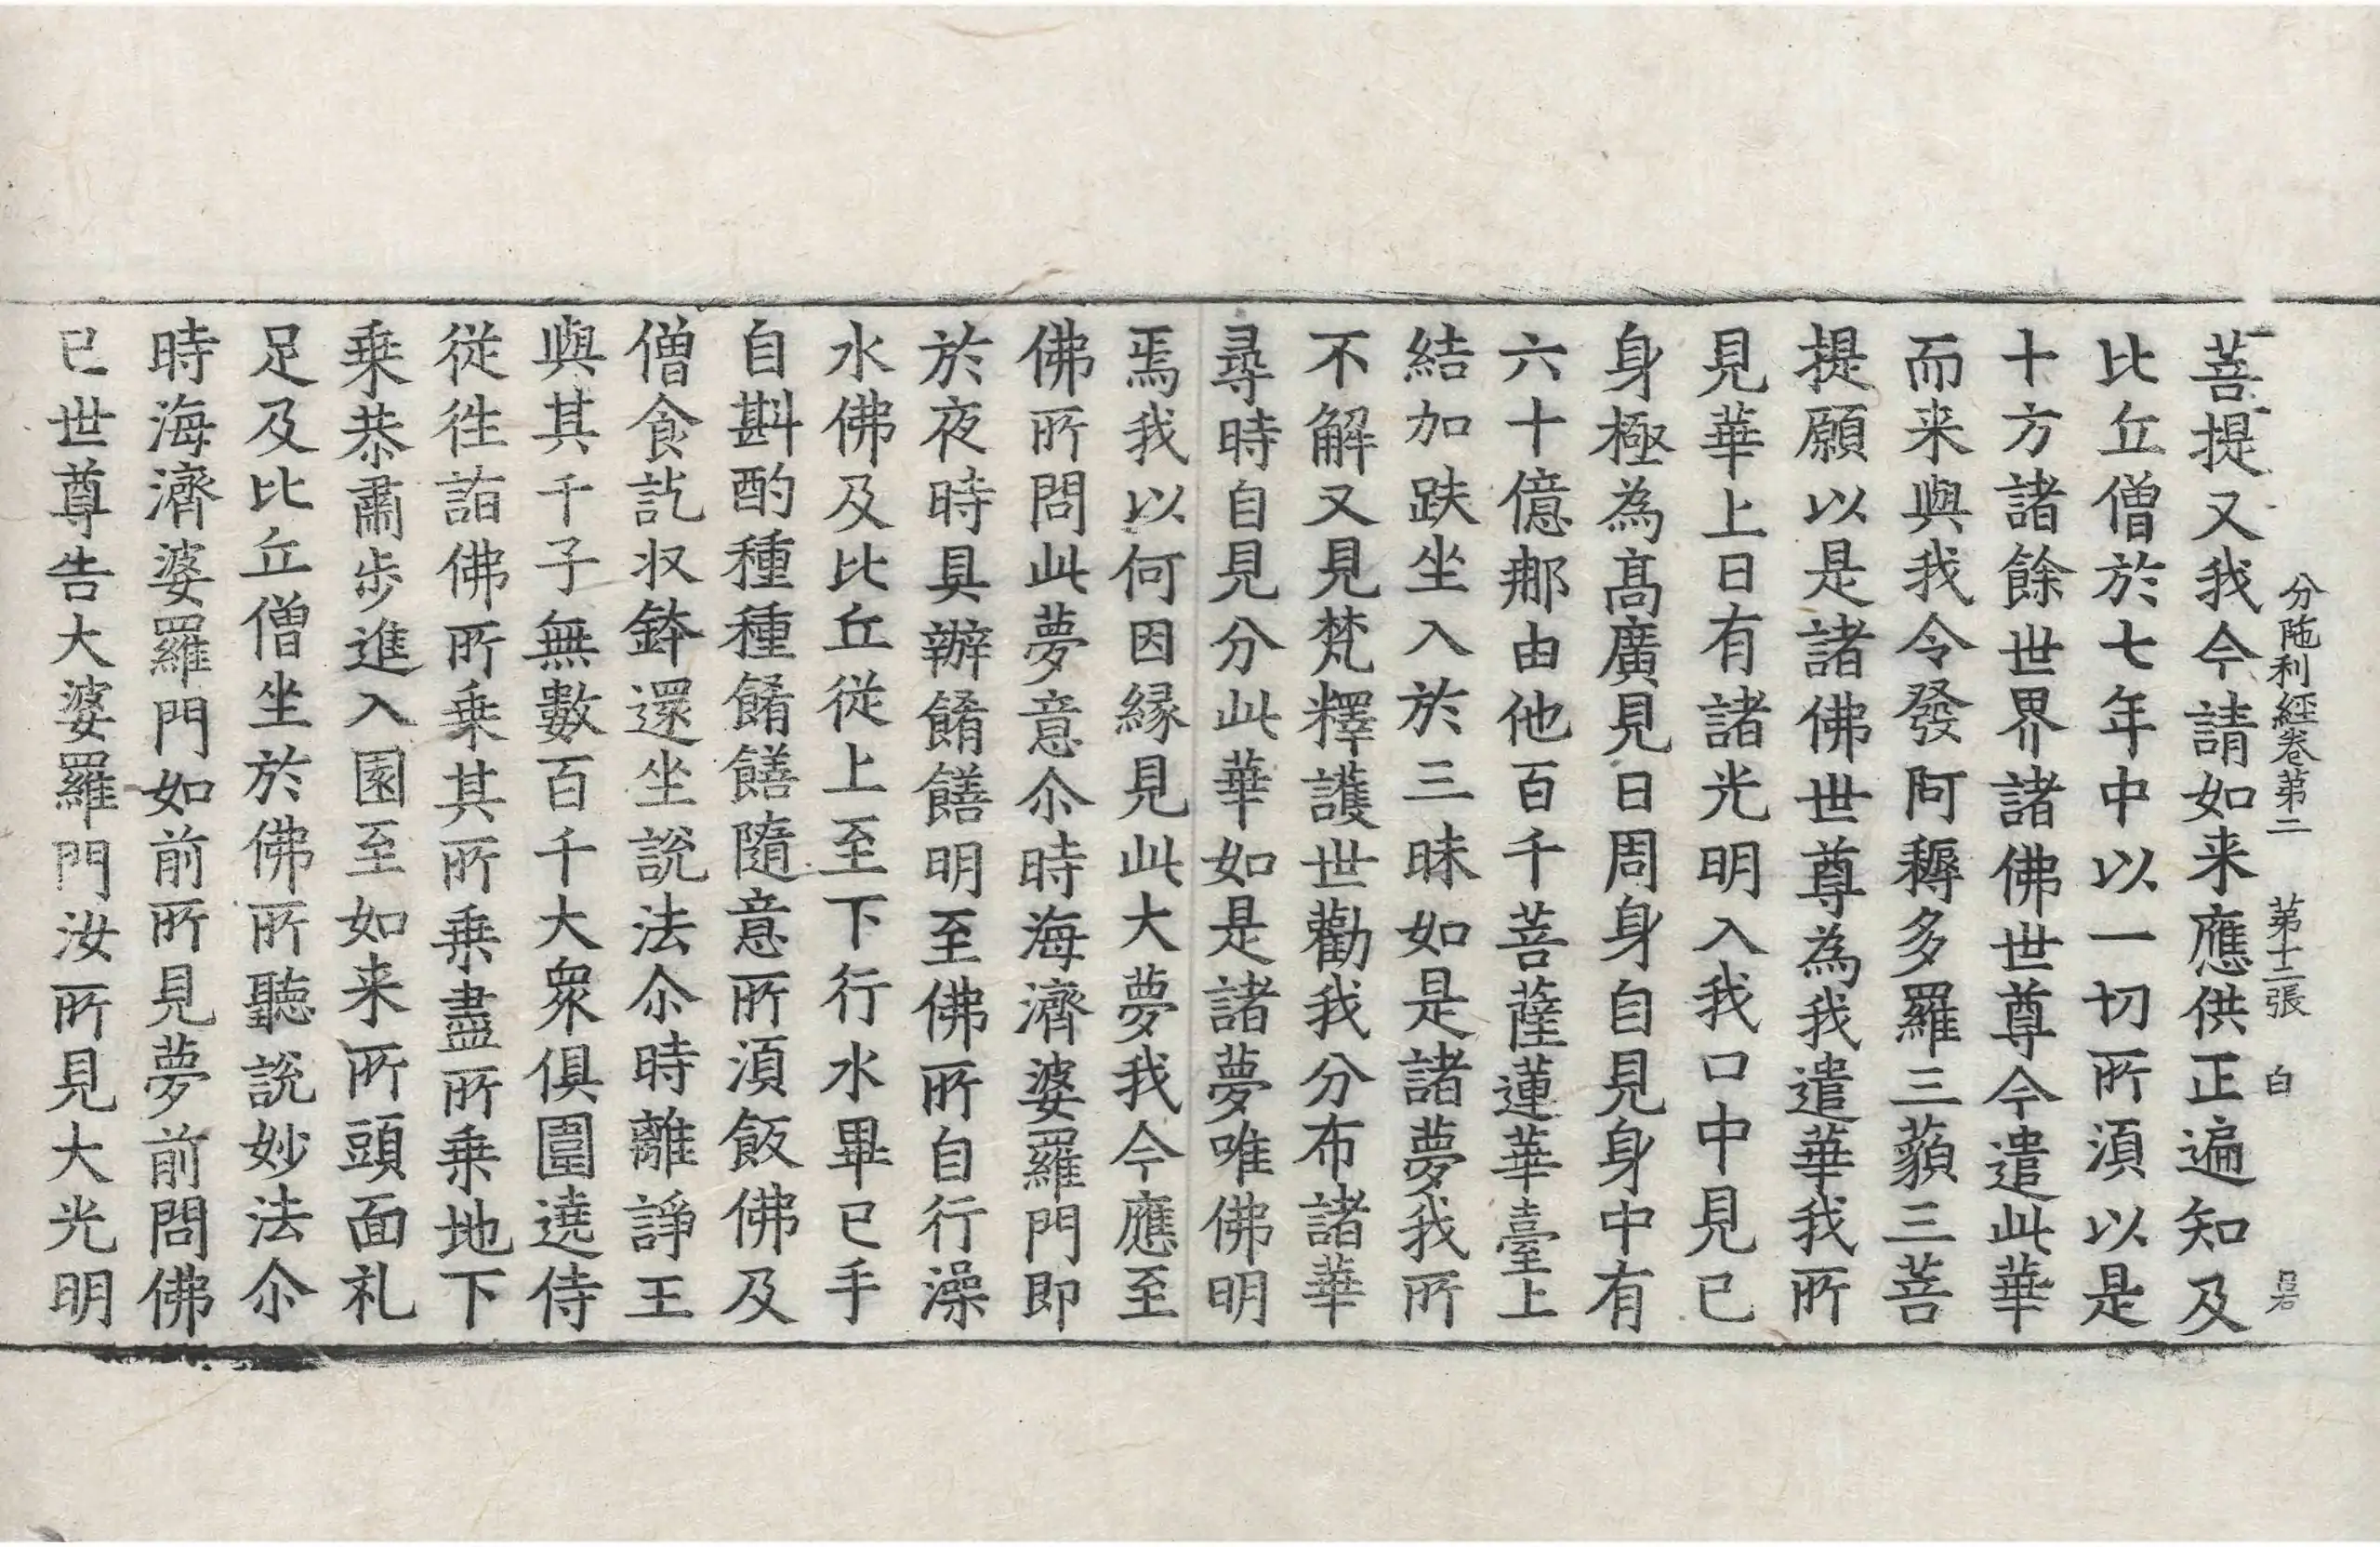 分陁利經卷第二　第十二張　白
菩提又我今請如来應供正遍知及
比丘僧於七年中以一切所湏以是
十方諸餘世界諸佛世尊今遣此華
而来與我令發阿耨多羅三藐三菩
提願以是諸佛世尊為我遣華我所
見華上日有諸光明入我口中見已
身極為髙廣見日周身自見身中有
六十億那由他百千菩薩蓮華臺上
結加趺坐入於三昧如是諸夢我所
不解又見梵釋護世勸我分布諸華
尋時自見分此華如是諸夢唯佛明
焉我以何因縁見此大夢我今應至
佛所問此夢意尒時海濟婆羅門即
於夜時具辦餚饍明至佛所自行澡
水佛及比丘從上至下行水畢已手
自斟酌種種餚饍隨意所湏飯佛及
僧食訖収鉢還坐說法尒時離諍王
與其千子無數百千大衆俱圍遶侍
從徃詣佛所乗其所乗盡所乗地下
乗恭肅步進入園至如来所頭面礼
足及比丘僧坐於佛所聽說妙法尒
時海濟婆羅門如前所見夢前問佛
已世尊告大婆羅門汝所見大光明